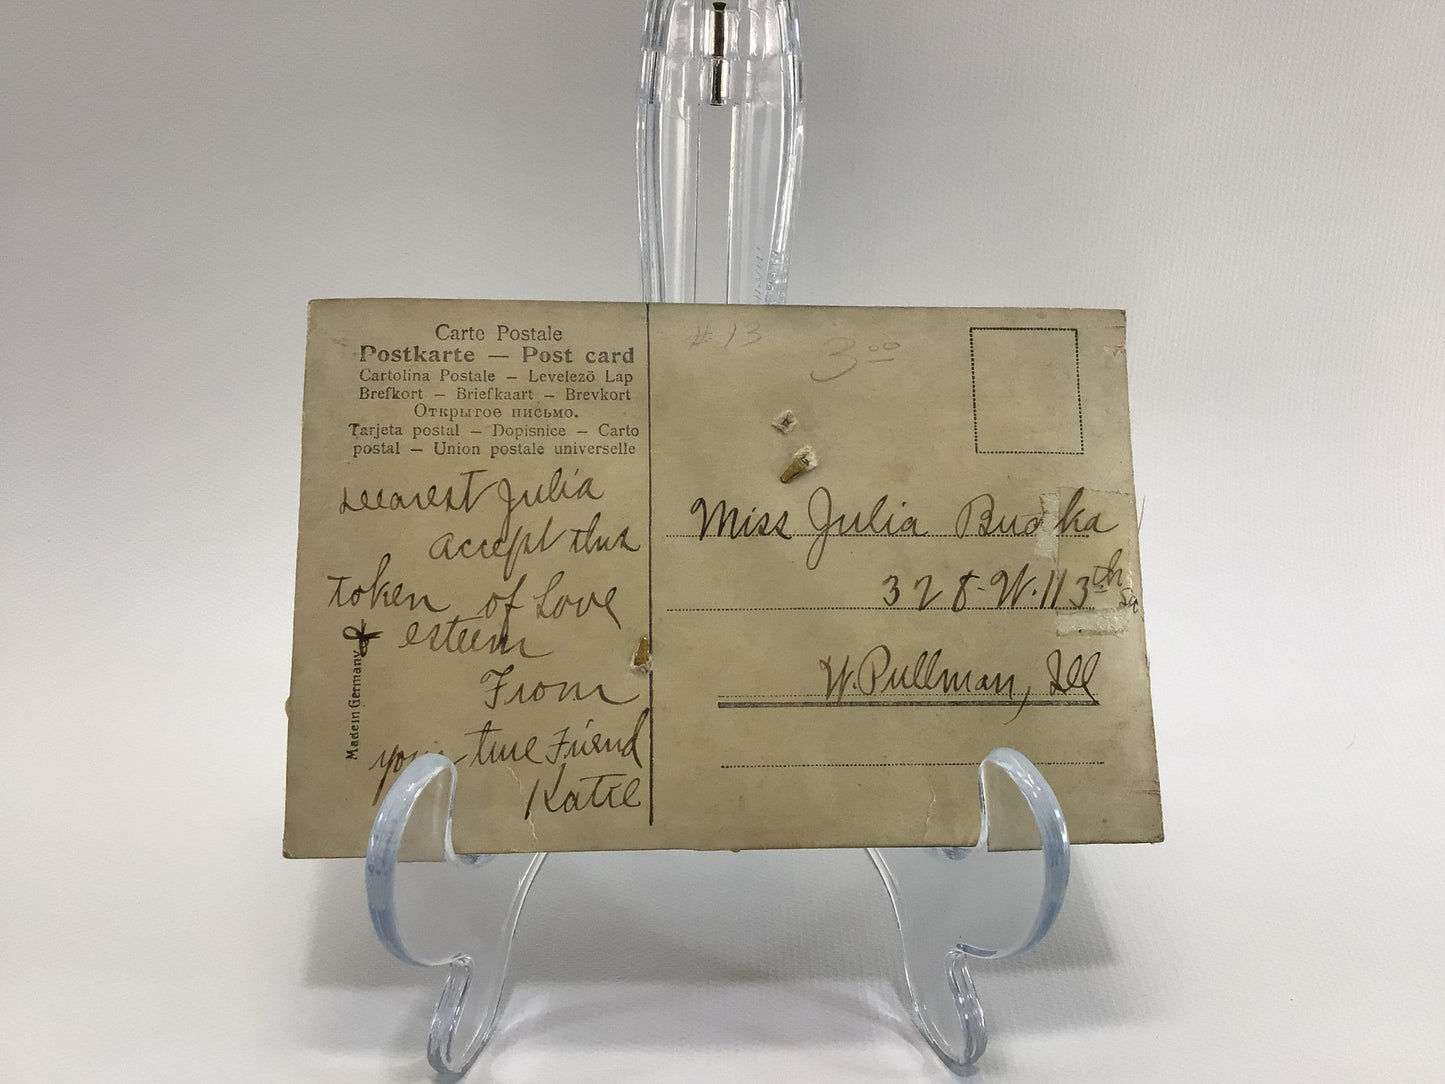 Carte Postale
Postkarte — Post card
Cartolina Postale — Levelezö Lap
Brefkort — Briefkaart — Brevkort
Открытое письмо.
Tarjeta postal — Dopisnice — Carto
postal — Union postale universelle
Dearest Julia
accept this
token of Love
& esteem
From
your true Friend
Katie
Made in Germany
# 13
3 00
Miss Julia
328-W. 113th
W. Pullman, Ill